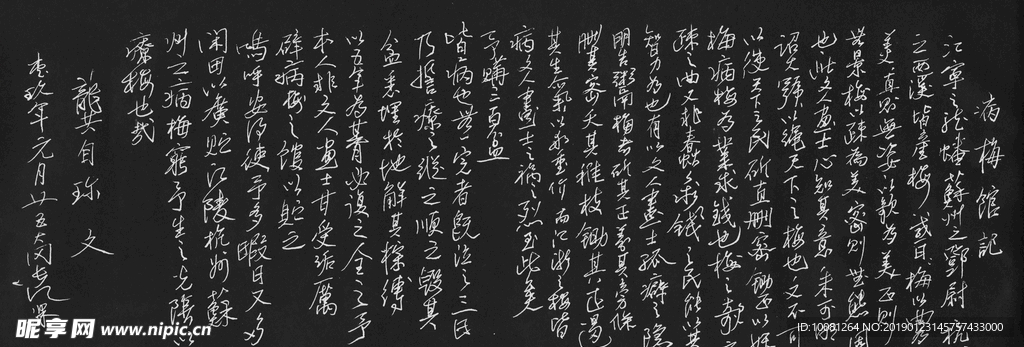 病梅馆记
江寧之龍蟠蘇州之鄧尉杭
之西溪皆產梅或曰梅以曲
美直則無姿以欹为美正則
無景梅以疎为美密則無態固
也此文人画士心知其意未可明
詔大號以绳天下之梅也又不可
以使天下之民斫直删密鋤正以殀
梅病梅为業求錢也梅之欹之
疎之曲又非蠢蠢求錢之民能以其
智力为也有以文人畫士孤癖之隐
明告鬻梅者斫其正養其旁條
删其密夭其稚枝鋤其直遏
其生氣以求重价而江浙之梅皆
病文人畫士之祸之烈至此矣
予購三百盆
皆病也無一完者既泣之三日
乃誓療之縱之順之毁其
盆悉埋於地解其棕縛
以五年为期必復之全之予
本人非文人畫士甘受诟厲
辟病梅之馆以貯之
嗚呼安得使予多暇日又多
闲田以廣貯江陵杭州蘇
州之病梅窮予生之光陰以
療梅也哉
龔自珍 文
玖年元月廿五
昵享网 www.nipic.cn
ID:10981264 NO:20190123145757433000